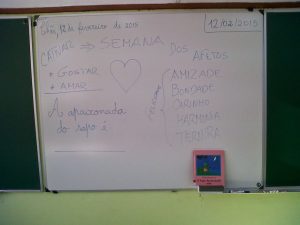 12 de fevereiro de 2015
12/02/2015
CATIVAR ⇒ SEMANA DOS AFETOS
* GOSTAR
* AMAR
AMIZADE
BONDADE
CARINHO
HARMONIA
TERNURA
A apaixonada
do sapo é